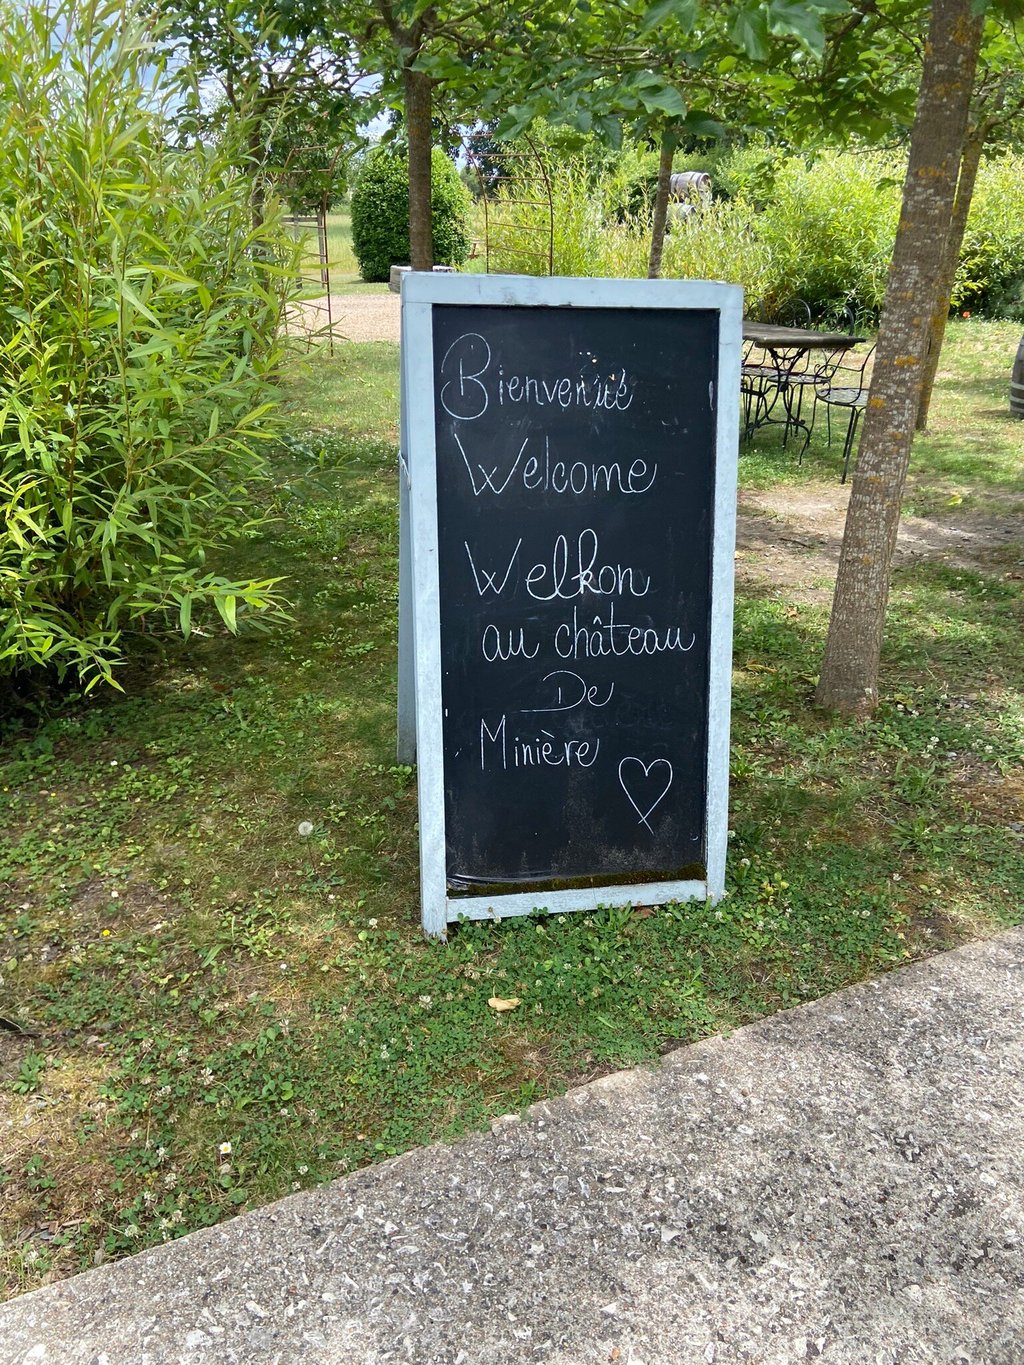 Bienvenue
Welcome
Welkon
au château
De
Minière